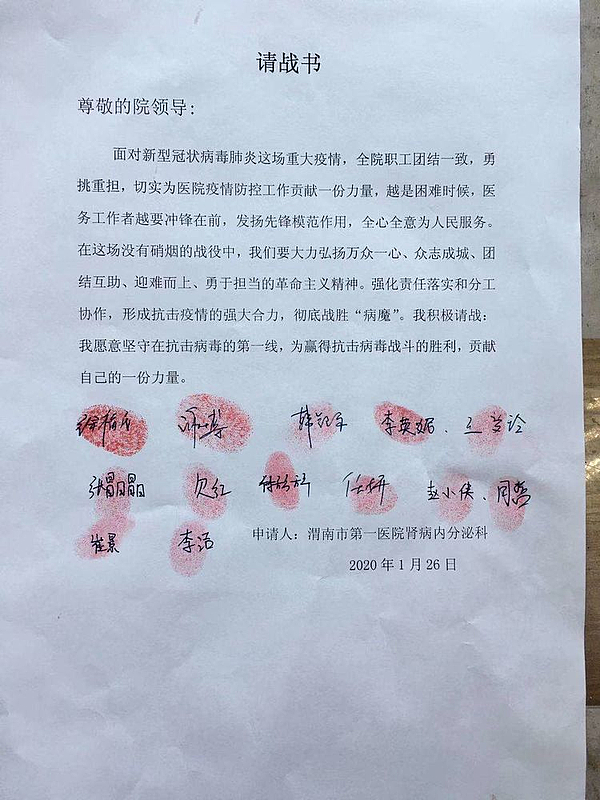 请战书
尊敬的院领导：
面对新型冠状病毒肺炎这场重大疫情，全院职工团结一致，勇
挑重担，切实为医院疫情防控工作贡献一份力量，越是困难时候，医
务工作者越要冲锋在前，发扬先锋模范作用，全心全意为人民服务。
在这场没有硝烟的战役中，我们要大力弘扬万众一心、众志成城、团
结互助、迎难而上、勇于担当的革命主义精神。强化责任落实和分工
协作，形成抗击疫情的强大合力，彻底战胜“病魔”。我积极请战：
我愿意坚守在抗击病毒的第一线，为赢得抗击病毒战斗的胜利，贡献
自己的一份力量。
李英娟、王
张晶晶 任妍 赵小侠、周
崔景 李洁 申请人：渭南市第一医院肾病内分泌科
2020 年 1 月 26 日